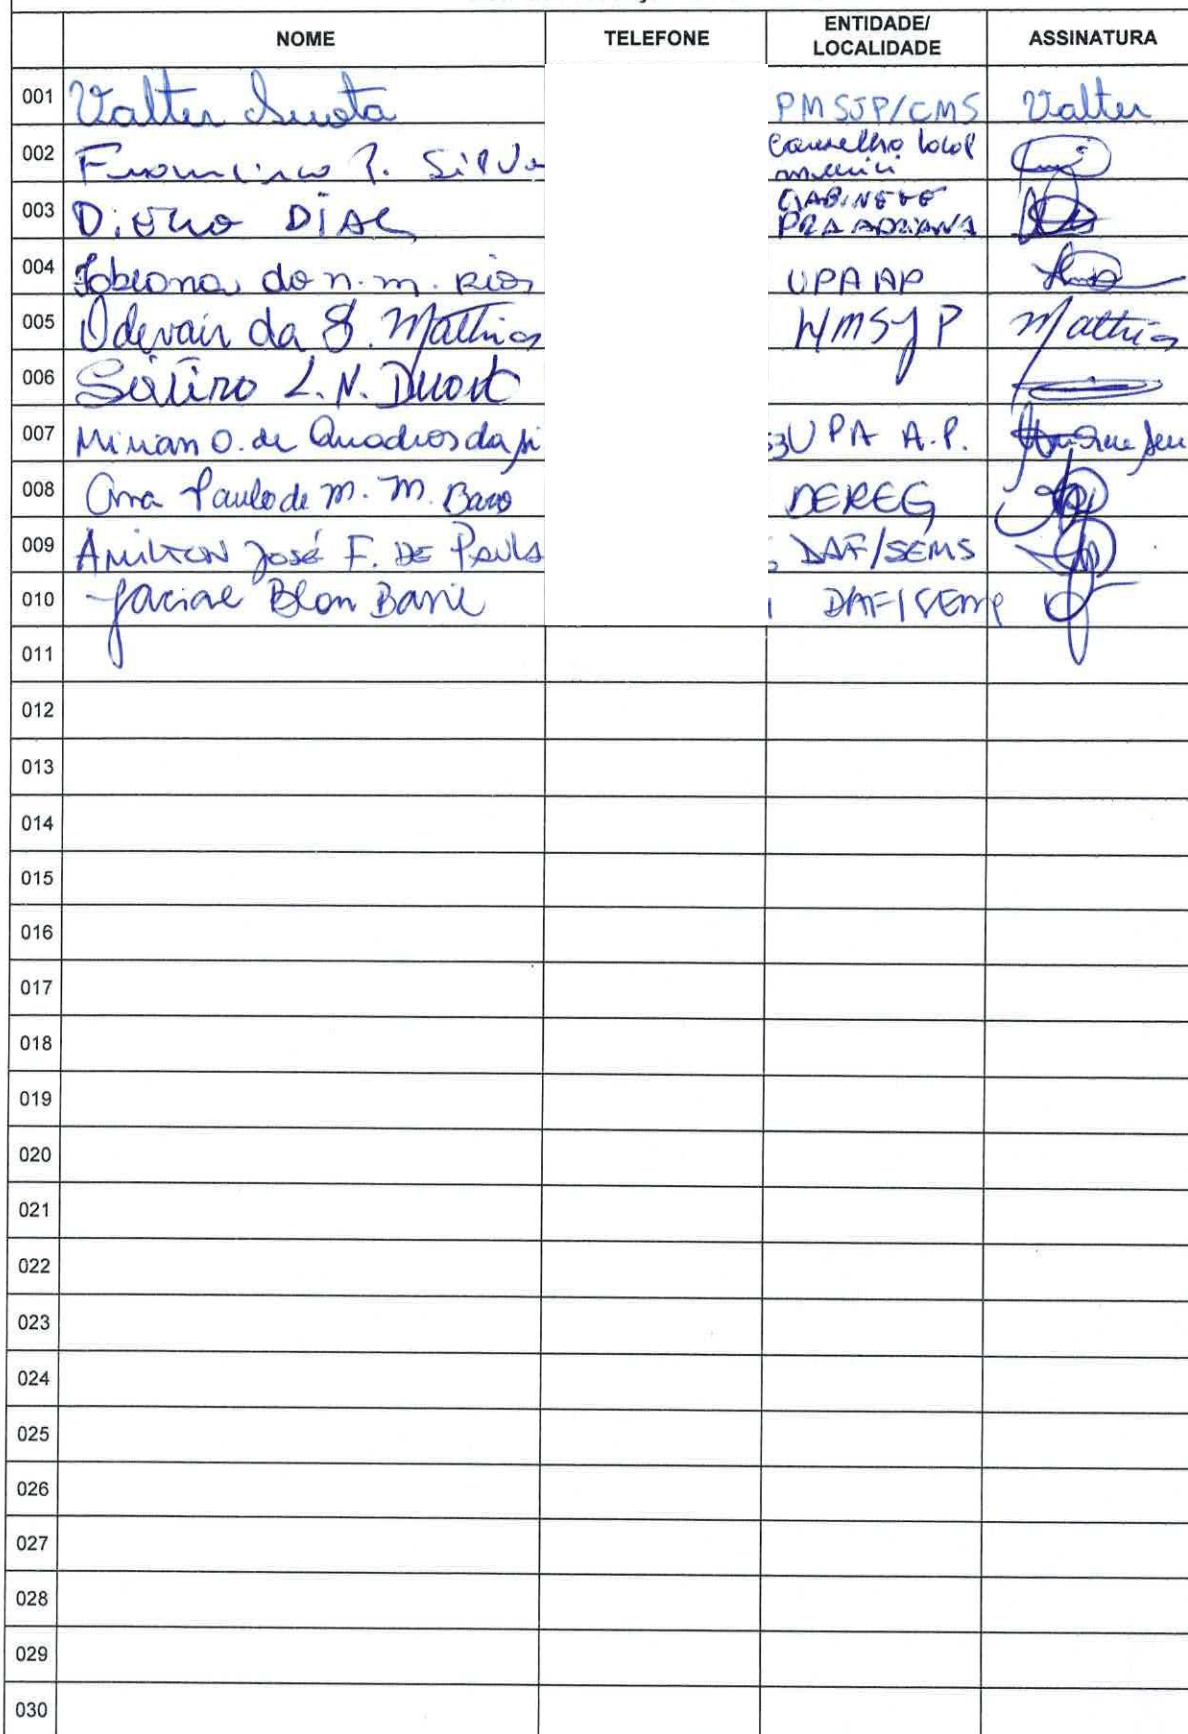 NOME TELEFONE ENTIDADE/ LOCALIDADE ASSINATURA
001 Valter PMSJP/CMS Valter
002 P. Silva Conselho local
003 Diogo DIAS GABINETE PRA ADRIANA
004 Fabiana do n. m. Rios UPA AP
005 Odevair da S. Mathias HMSJP Mathias
006 L. N. Duart
007 Mirian O. de Quadros da UPA A.P.
008 Ana Paula de M. M. DEREG
009 Amilton José F. DE Paula DAF/SEMS
010 DAF/
011
012
013
014
015
016
017
018
019
020
021
022
023
024
025
026
027
028
029
030